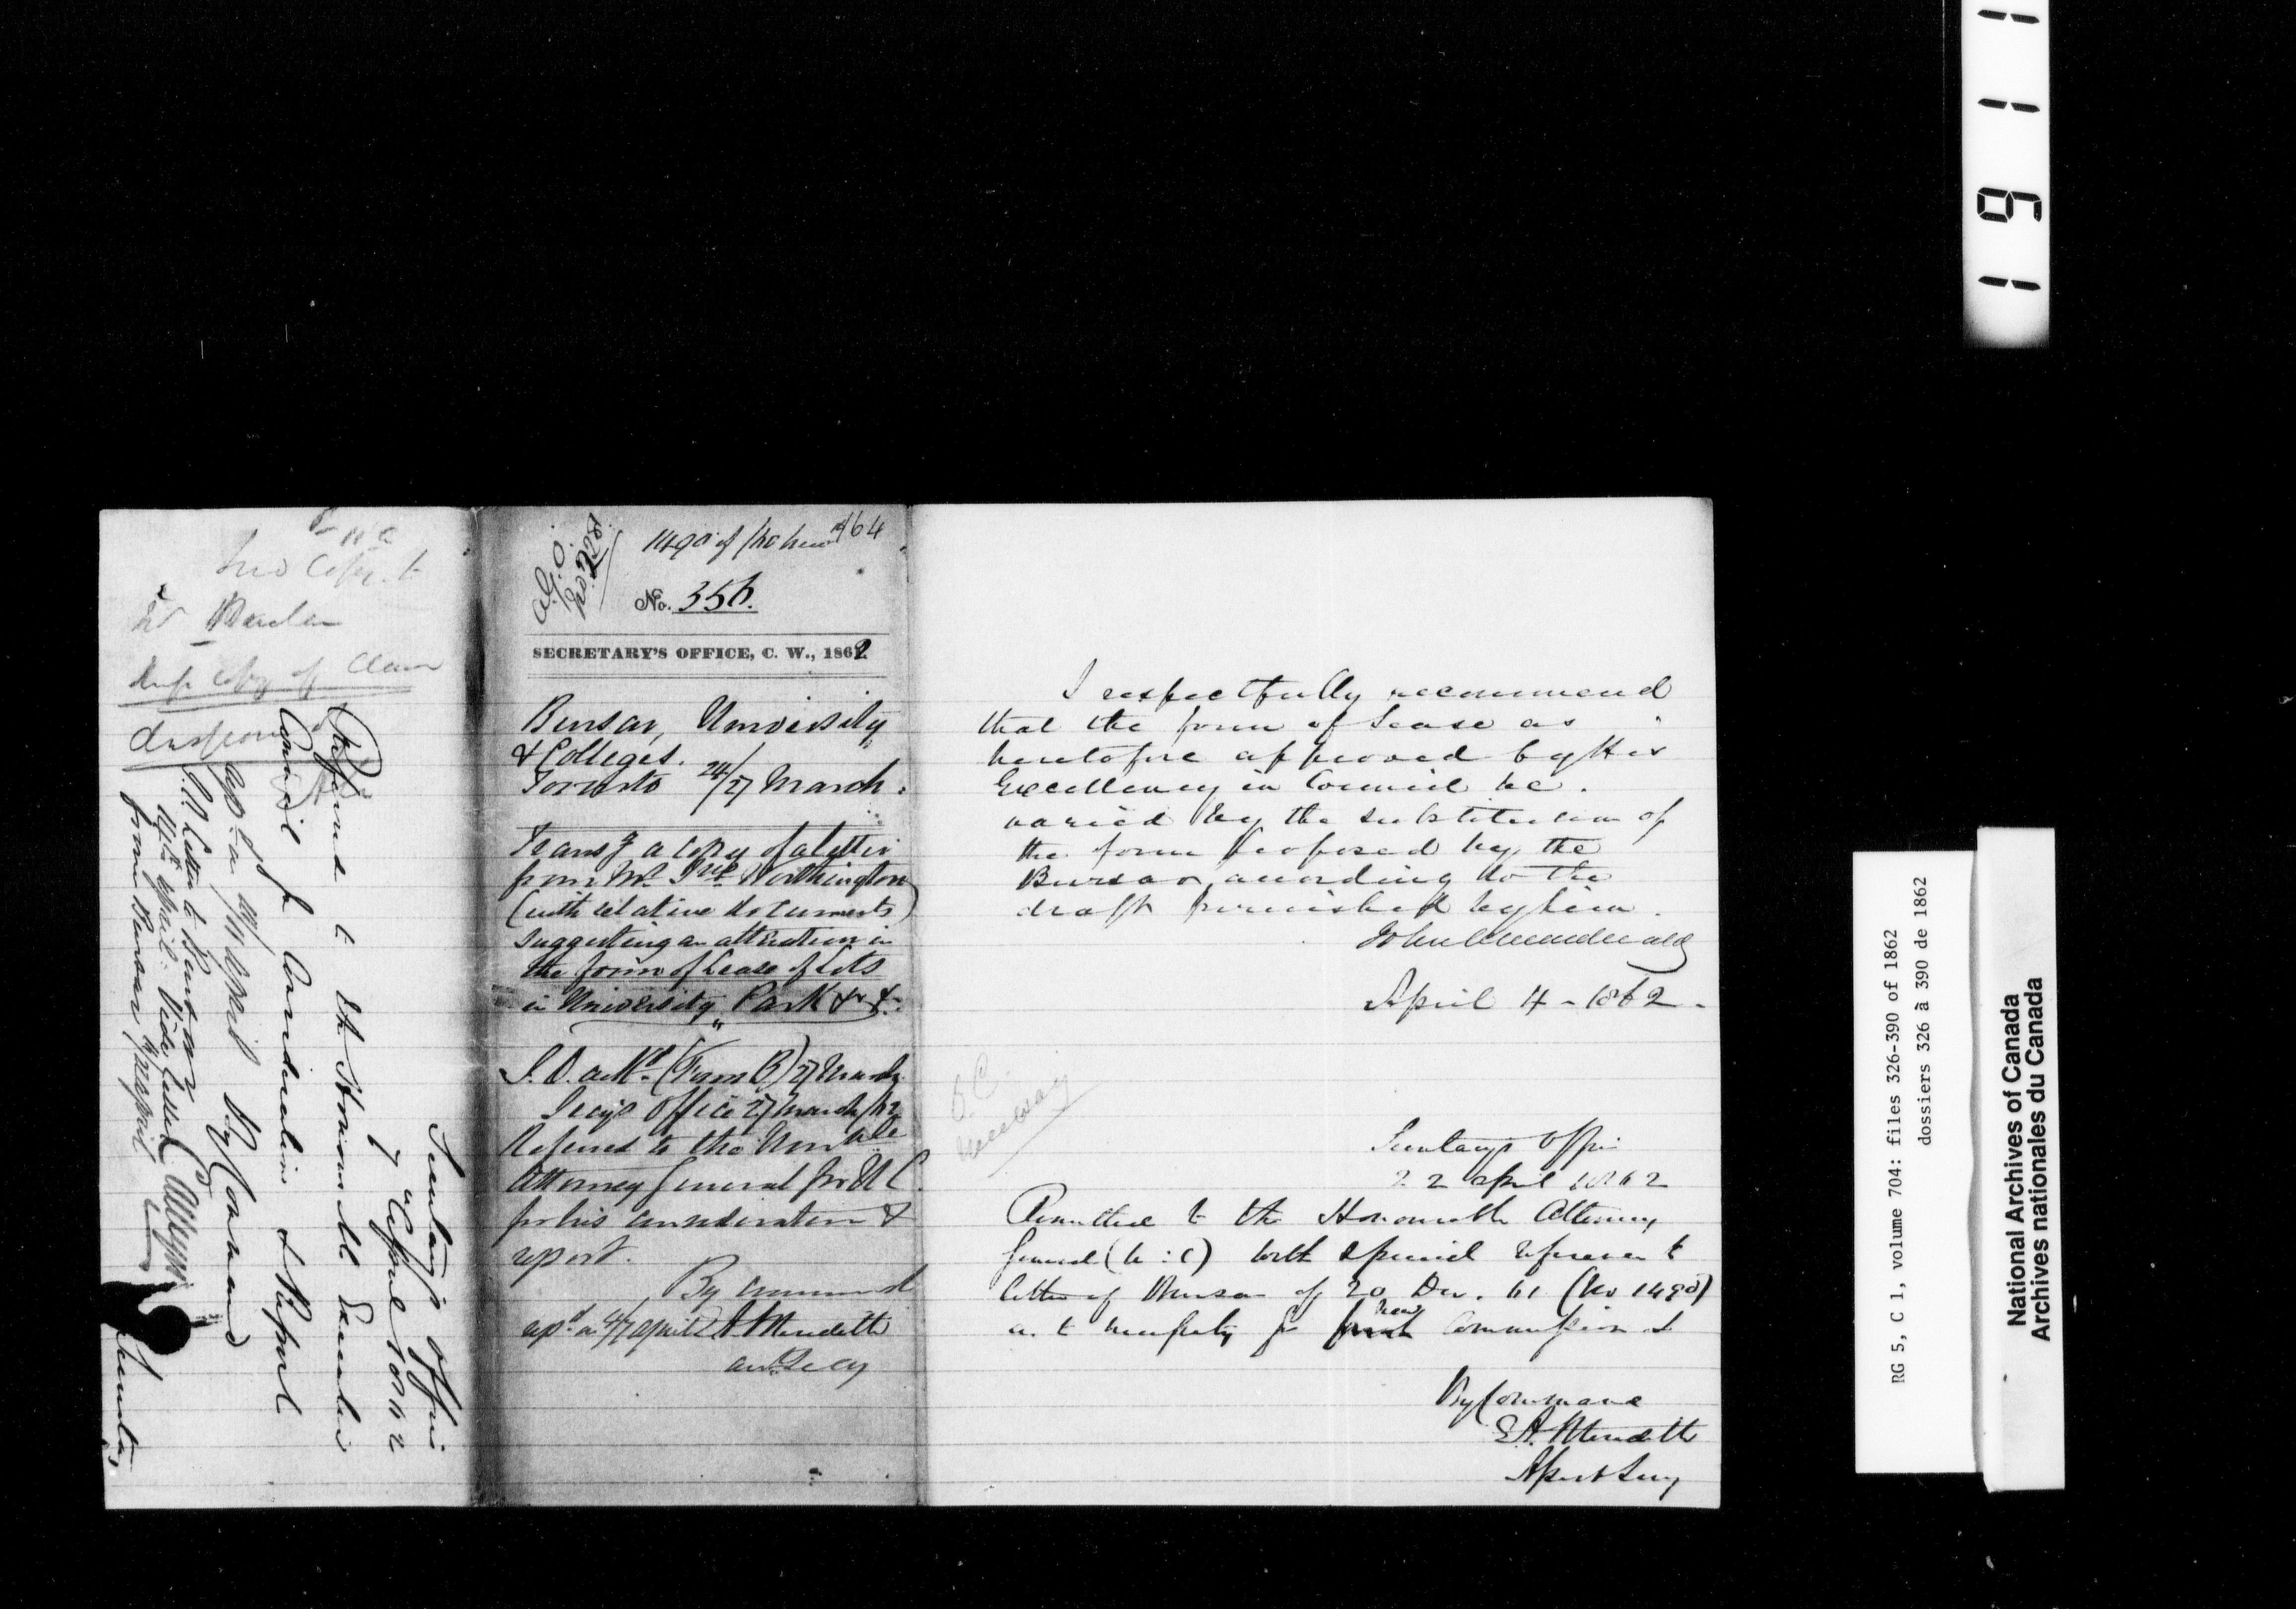 No. 356.
SECRETARY'S OFFICE, C. W., 1862
Bursar, University
& Colleges.
Toronto 24/27 March.
a copy of a letter
from Mr. Worthington
(with relative documents)
suggesting an alteration in
the form of Lease of Lots
in University Park &c &c.
(Form B) 27 March
Secy's Office 27 March/62
Referred to the Honble
Attorney General for U C.
for his consideration &
report.
By command
E A Meredith
Asst Secy
I respectfully recommend
that the form of Lease as
heretofore approved by His
Excellency in Council be
varied by the substitution of
the form proposed by the
Bursar, according to the
draft furnished by him.
John A Macdonald
April 4 - 1862 -
O.C.
necessary
Secretary's Office
22 April 1862
to the Honourable Attorney
General (U:C) with special reference to
letter of Bursar of 20 Dec. 61 (No 1490)
as to necessity for new Commission
By Command
E.A. Meredith
Asst Secy
copy of
Secretary's Office
7 April 1862
Referred to the Honourable Executive
Council for Consideration & Report
By Command
C Alleyn
Secretary
Letter to Bursar
from Bursar
1911
RG 5, C 1, volume 704: files 326-390 of 1862
dossiers 326 à 390 de 1862
National Archives of Canada
Archives nationales du Canada